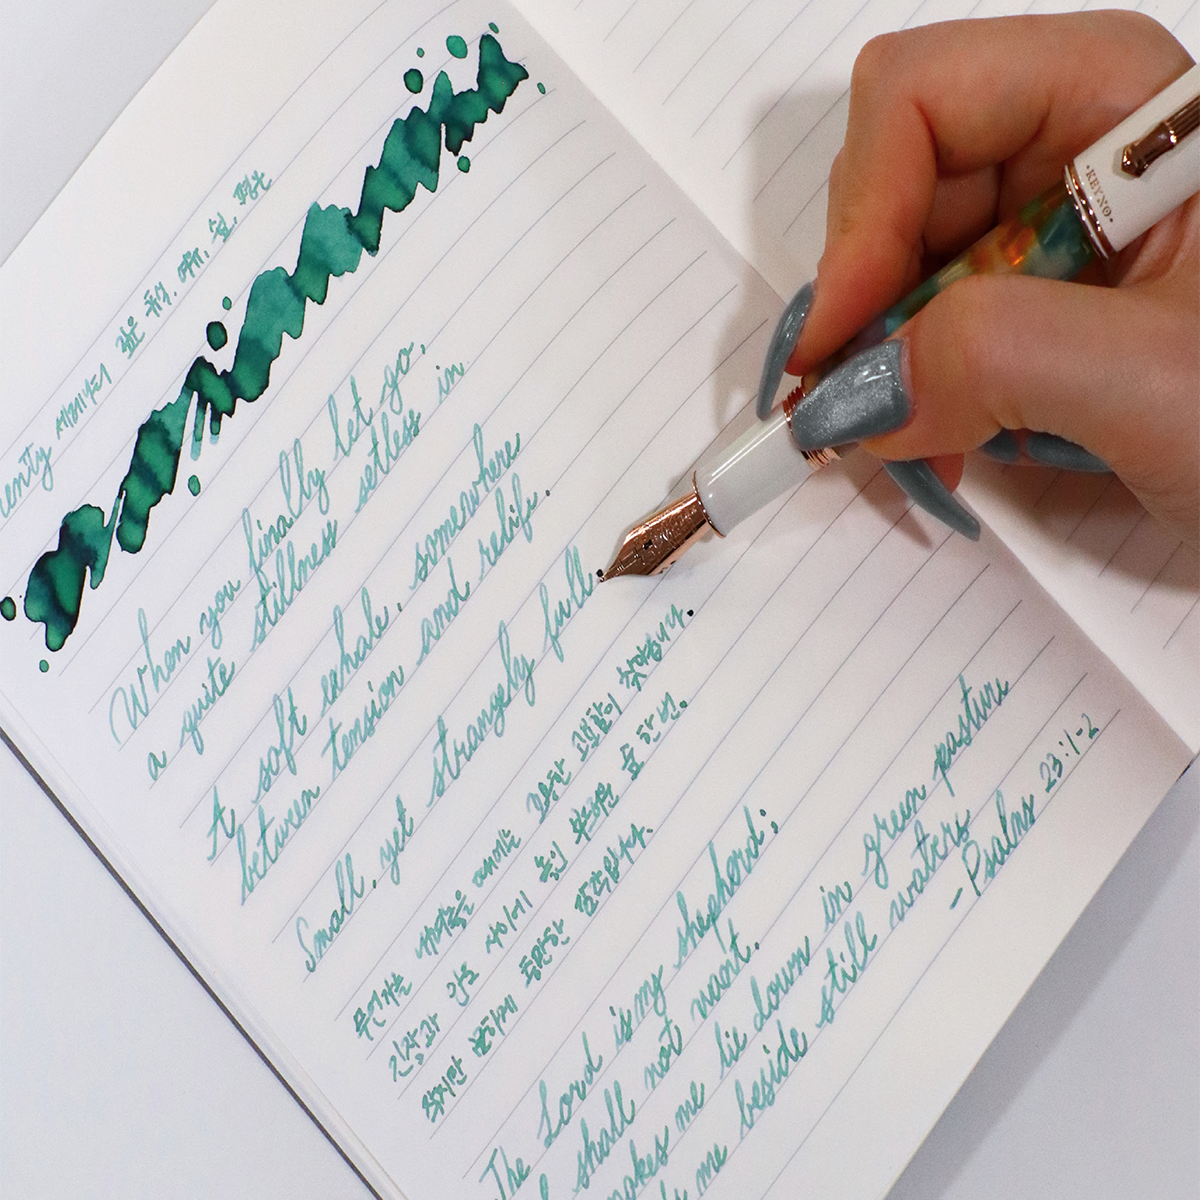 세레니티 깊은 휴식, 여유, 쉼, 평온
When you finally let go,
a quite stillness settless in
A soft exhale, somewhere
between tension and relife.
Small, yet strangely full.
무언가를 내려놓은 때에는 고요함이 찾아옵니다.
긴장과 안도 사이에 놓인 부드러운 숨 한 번.
작지만 묘하게 충만한 감각입니다.
The Lord is my shepherd;
shall not want.
makes me lie down in green pasture
me beside still waters
-Psalms 23:1-2
KEYNO